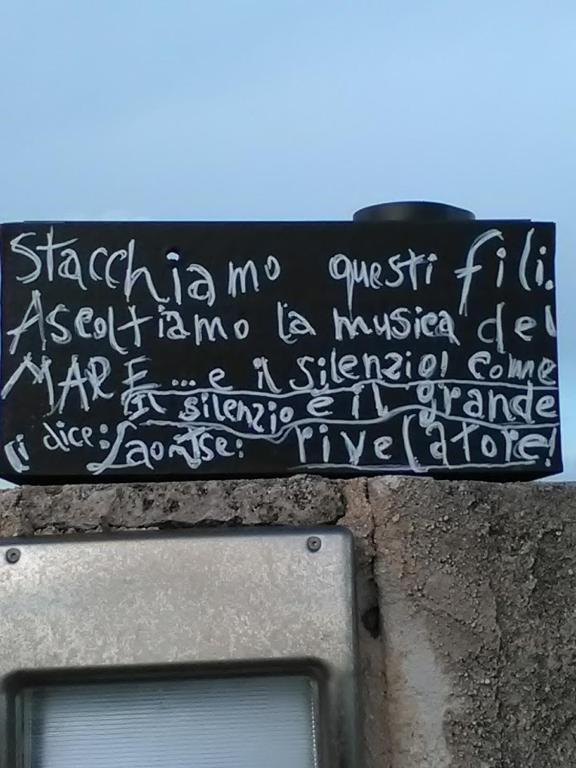 Stacchiamo questi fili.
Ascoltiamo la musica del
MARE... e il silenzio! come
Il silenzio è il grande
ci dice: Laotse: rivelatore!